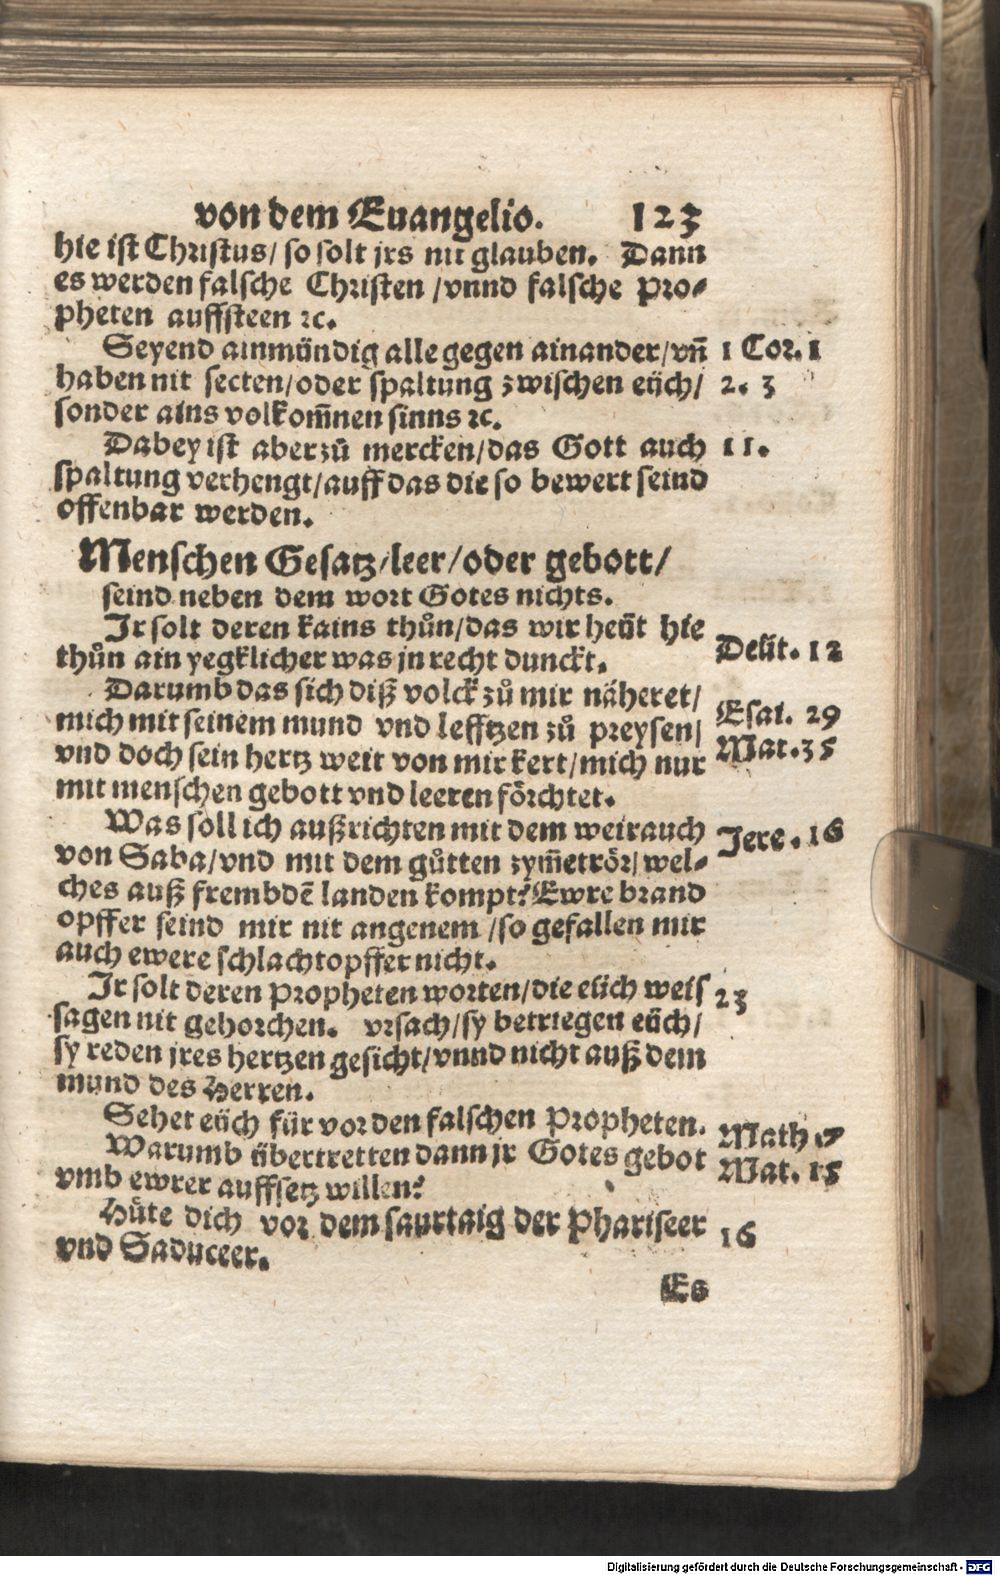 von dem Euangelio. 123
hie ist Christus/ so solt jrs nit glauben. Dann
es werden falsche Christen /vnnd falsche Pro-
pheten auffsteen ꝛc.
Seyend ainmündig alle gegen ainander/vn̄ 1 Cor. 1
haben nit secten/oder spaltung zwischen eüch/ 2. 3
sonder ains volkom̄nen sinns ꝛc.
Dabey ist aber zů mercken/das Gott auch 11.
spaltung verhengt/auff das die so bewert seind
offenbar werden.
Menschen Gesatz/leer/oder gebott/
seind neben dem wort Gotes nichts.
Ir solt deren kains thůn/das wir heüt hie
thůn ain yegklicher was jn recht dunckt. Deüt. 12
Darumb das sich diß volck zů mir näheret/
mich mit seinem mund vnd lefftzen zů preysen/ Esai. 29
vnd doch sein hertz weit von mir kert/mich nur Mat.35
mit menschen gebott vnd leeren förchtet.
Was soll ich außrichten mit dem weirauch Jere. 16
von Saba/vnd mit dem gůtten zym̄etrör/ wel-
ches auß frembdē landen kompt? Ewre brand
opffer seind mir nit angenem /so gefallen mir
auch ewere schlachtopffer nicht.
Ir solt deren Propheten worten/die eüch weis 23
sagen nit gehorchen. vrsach/sy betriegen eüch/
sy reden jres hertzen gesicht/vnnd nicht auß dem
mund des Herren.
Sehet eüch für vor den falschen Propheten. Math 17
Warumb übertretten dann jr Gotes gebot Mat. 15
vmb ewrer auffsetz willen?
Hüte dich vor dem saurtaig der Phariseer 16
vnd Saduceer.
Es
Digitalisierung gefördert durch die Deutsche Forschungsgemeinschaft - DFG